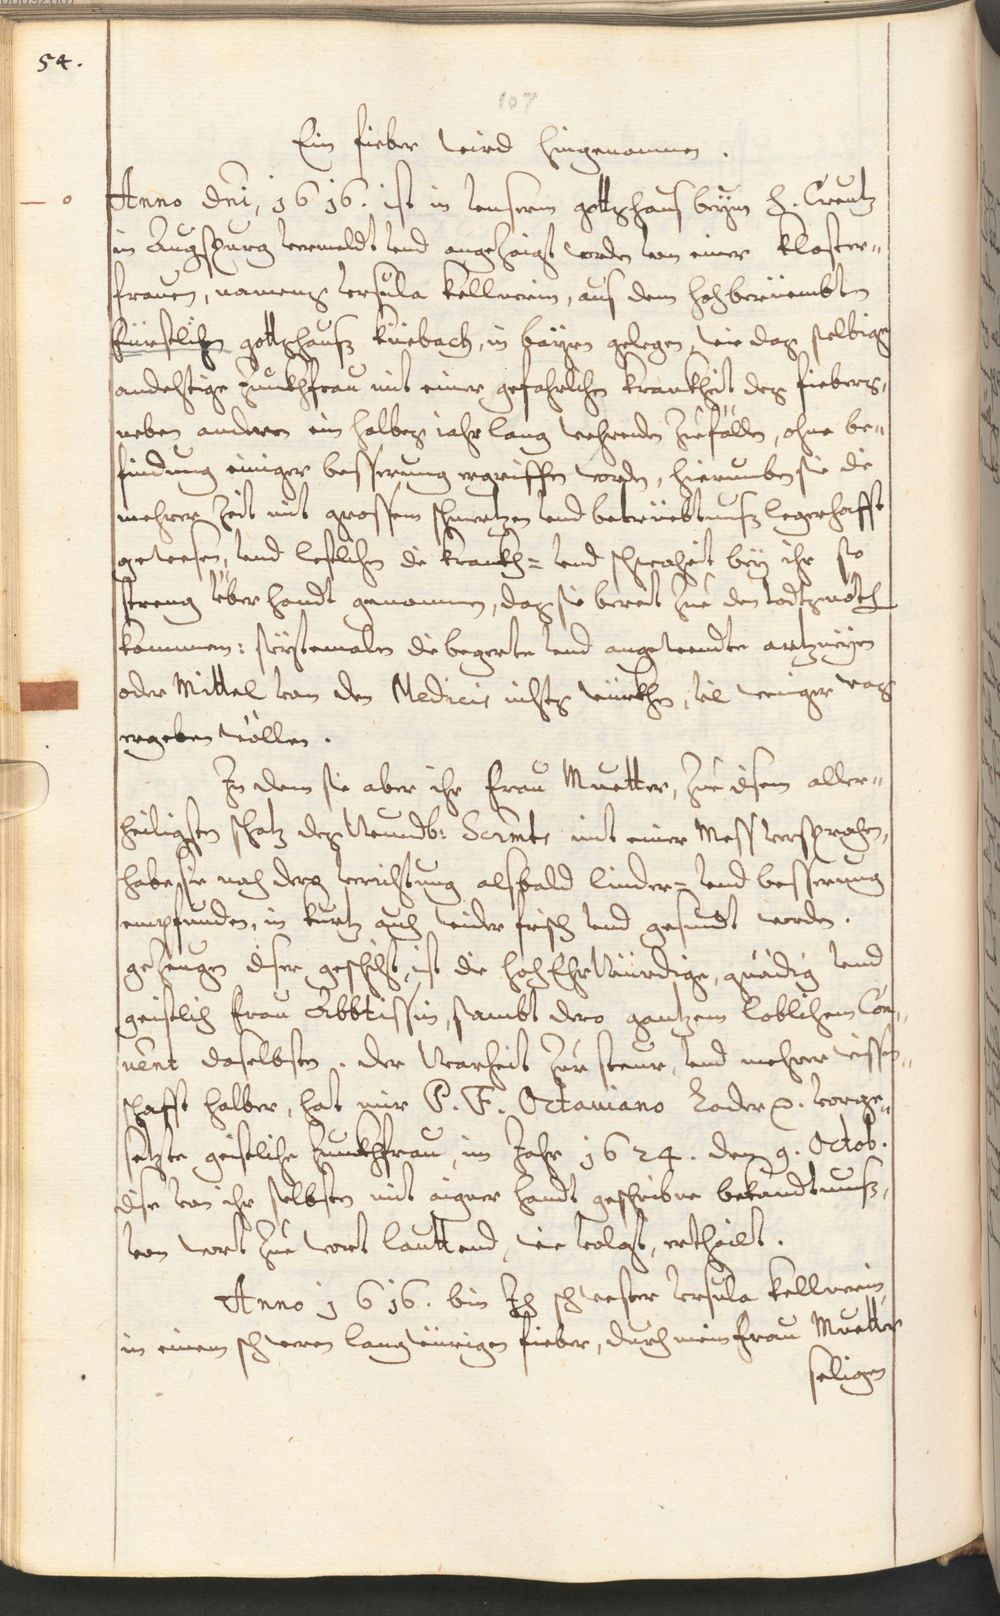 54.
107
Ein fieber wird hingenommen.
Anno Dni, 1616. ist in vnserm gottshaus beym H. Creutz
in Augspurg vermeldt vnd angezaigt worden von einer kloster=
frauen, namens Vrsula Kellnerin, aus dem hochberüembten
fürstlichen gottshaus Küebach, in bayren gelegen, wie das selbige
andechtige Junckhfrau mit einer gefahrlichen kranckheit des fiebers,
neben anderen ein halbes iahr lang wehrenden Zuefällen, ohne be=
findung einiger besserung ergriffen worden, hierumben sie die
mehrer Zeit mit grossem schmertzen vnd betrüebtnuss legerhafft
gewesen, vnd letstlichen die kranckh= vnd schwacheit bey ihr so
streng über handt genommen, das sie bereit zue den todtsnöth
kommen: seytemalen die begerte vnd angewendte artzneyen
oder Mittel von den Medicis nichts würckhen, vil weniger was
ergeben wöllen.
In dem sie aber ihr frau Muetter, zue disem aller=
heiligsten schatz des Wundb: Scrmts mit einer Mess versprochen,
habe sie nach ders verrichtung alsbald linder= vnd besserung
empfunden, in kurtz auch wider frisch vnd gesundt worden.
gezeugen diser geschicht, ist die hoch Ehrwürdige, gnädig vnd
geistlich frau Abbtissin, sambt dero gantzem loblichem Con=
uent daselbsten. Der Warheit zur steur, vnd mehrer wissen=
schafft halber, hat mir P. F. Octauiano Lader x. vorge=
setzte geistliche Junckhfrau, im Jahr 1624. den 9. Octob.
dise von ihr selbsten mit aigner handt geschribne bekandtnuss,
von wort zue wort lauttend, wie volgt, ertheilt.
Anno 1616. bin Ich schwester Vrsula Kellnerin,
in einem schweren langwürigen fieber, durch mein frau Muetter
seligen